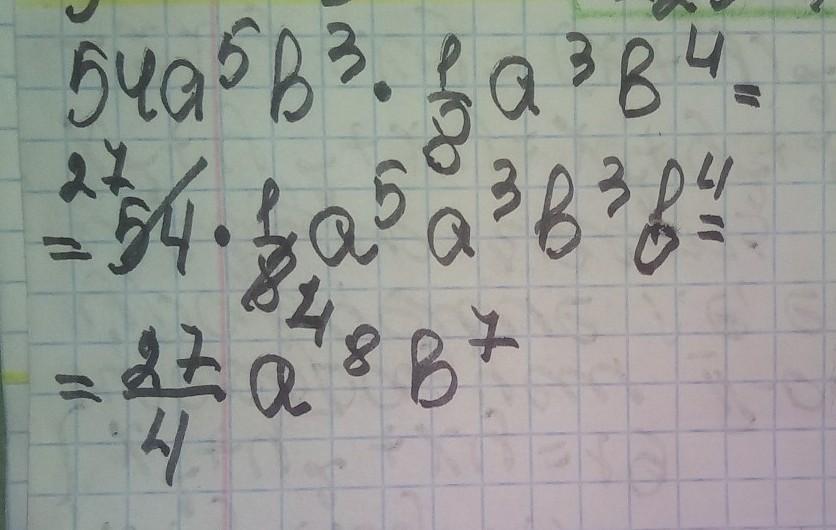 54a⁵b³ · 1/8 a³b⁴ =
27
= 54 · 1/8 a⁵ a³ b³ b⁴ =
4
= 27/4 a⁸ b⁷